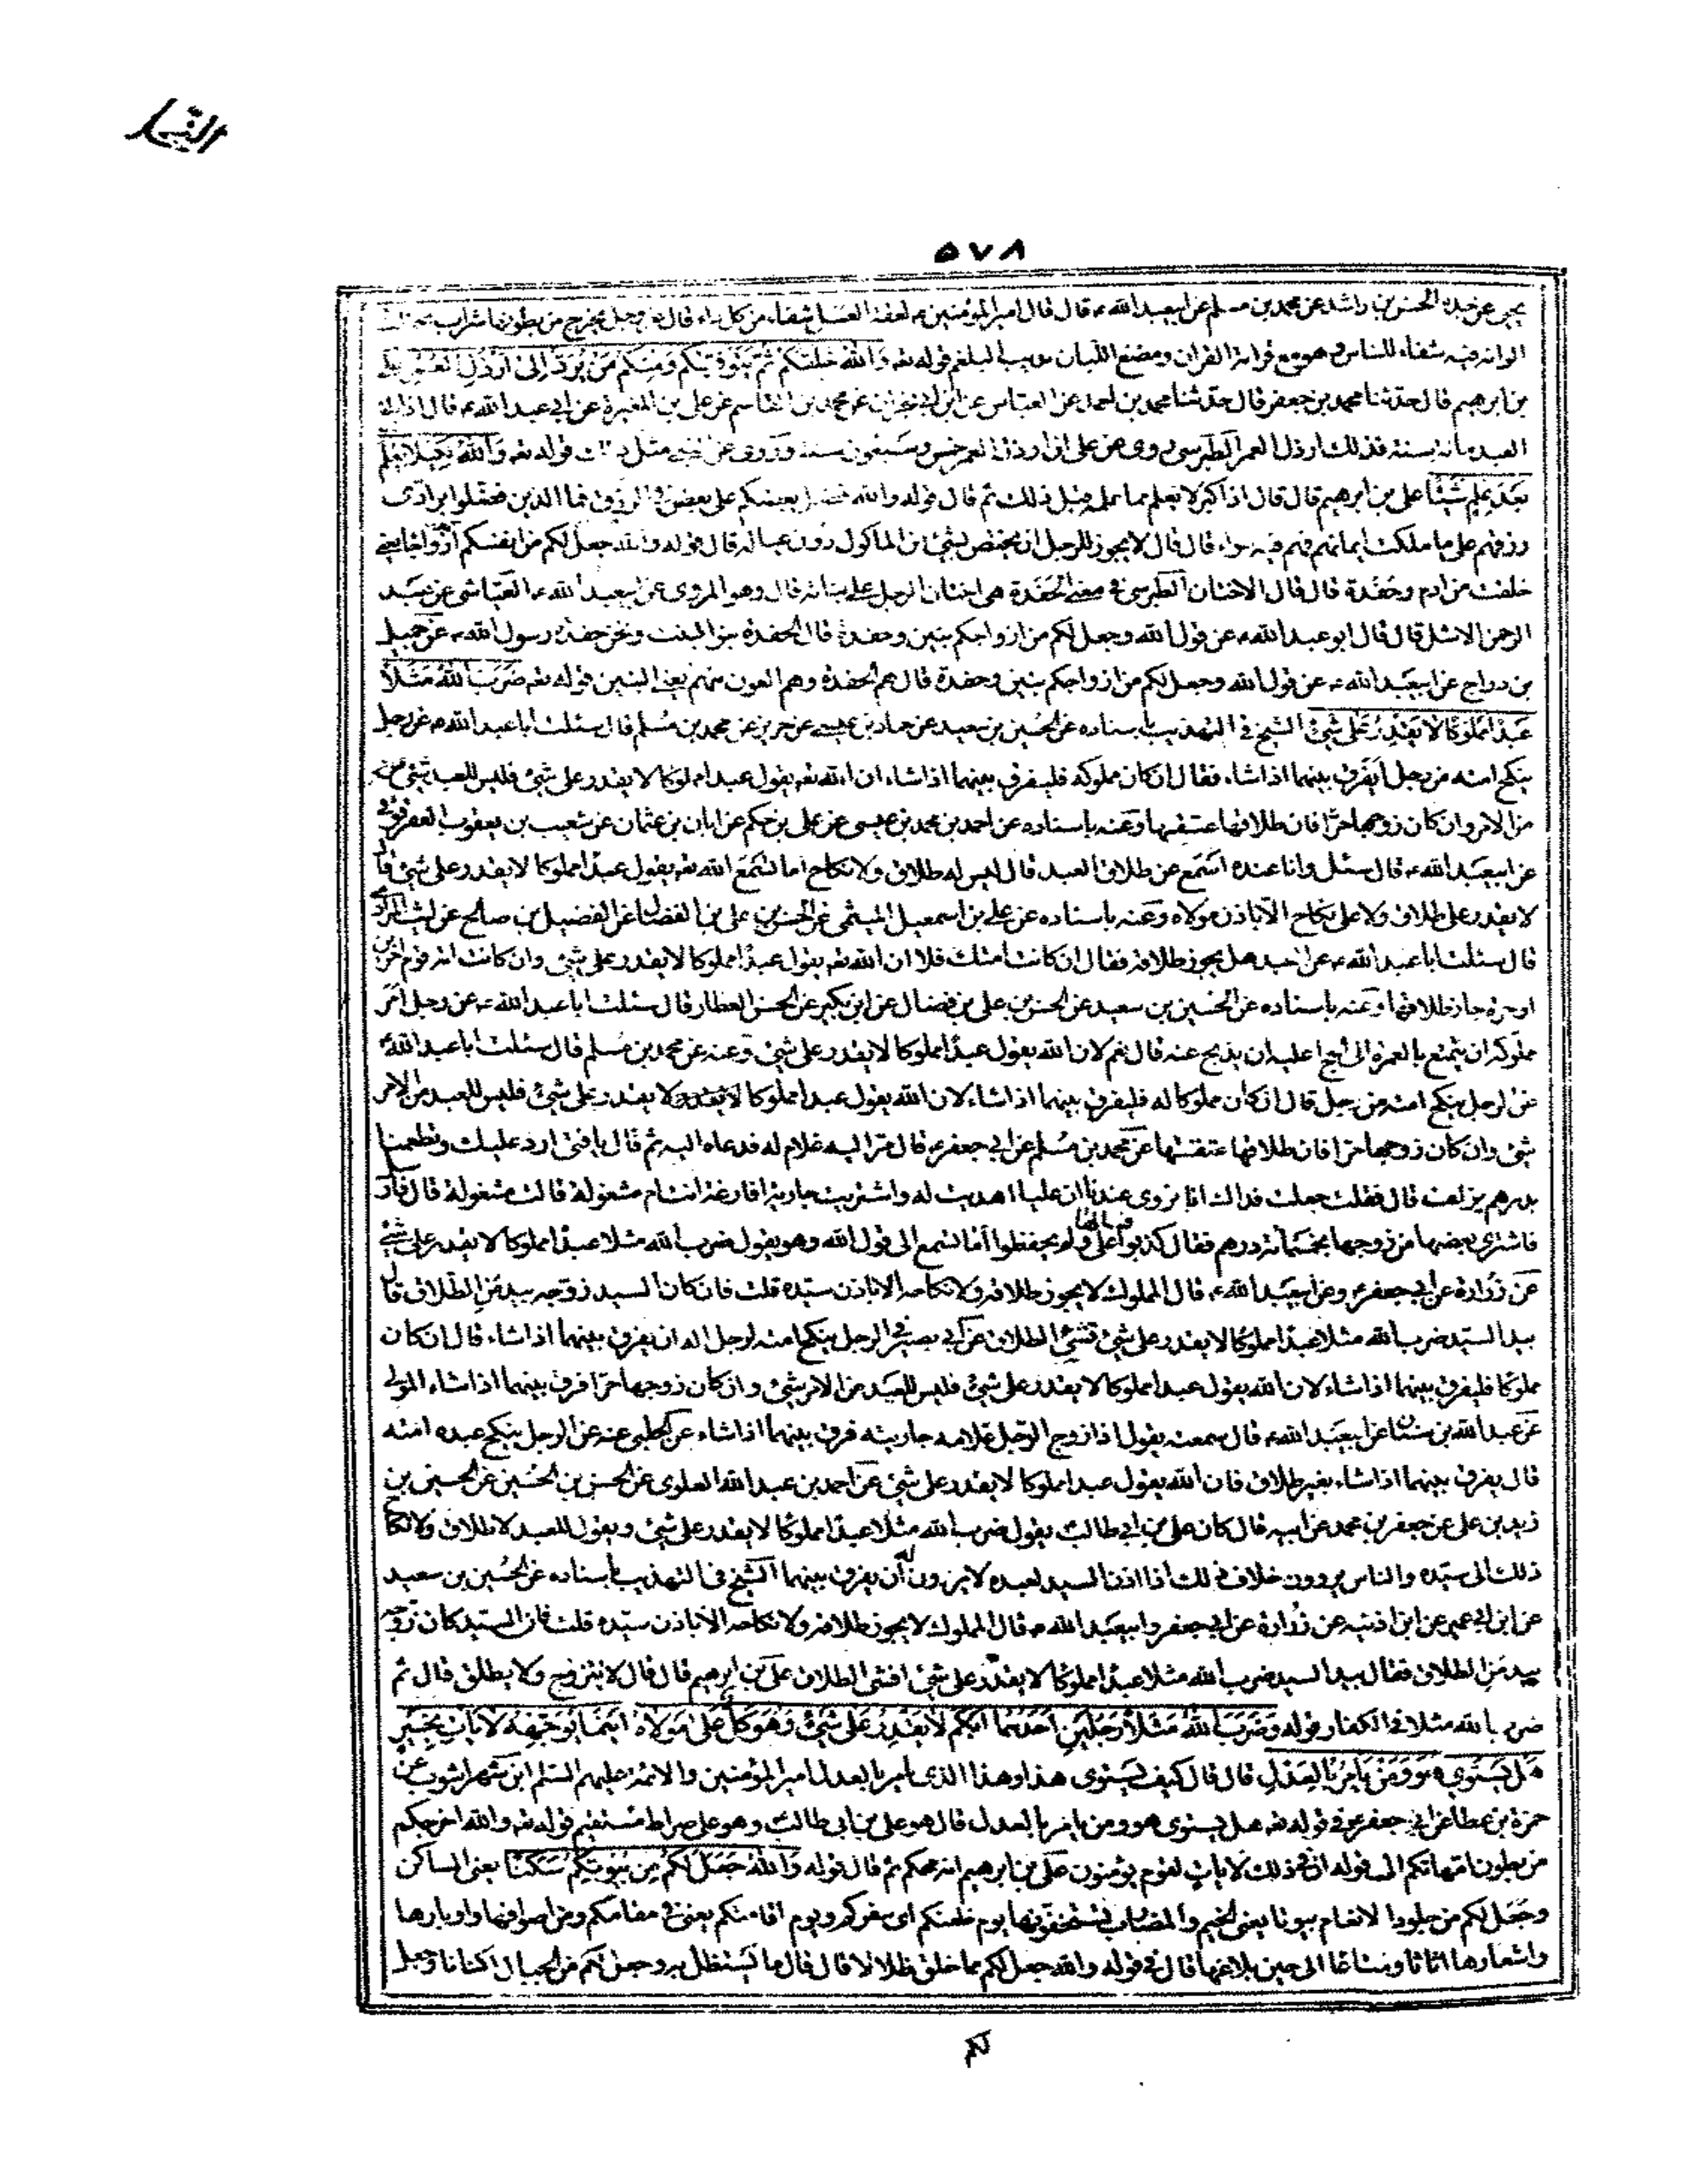 ٥٧٨
يحيى عن جده الحسن بن راشد عن محمد بن مسلم عن ابيعبد الله ع قال قال امير المؤمنين ع لعقة العسل شفاء من كل داء قال عز وجل يخرج من بطونها شراب مختلف
الوانه فيه شفاء للناس وهو مع قرائة القران ومضغ اللبان يذيب البلغم قوله تعه وَاللهُ خَلَقَكُمْ ثُمَّ يَتَوَفّيكُمْ وَمِنْكُمْ مَنْ يُرَدُّ اِلى اَرْذَلِ الْعُمُرِ على
بن ابرهيم قال حدثنا محمد بن جعفر قال حدثنا محمد بن احمد عن العباس عن ابن ابي نجران عن محمد بن القاسم عن على بن المغيرة عن ابي عبد الله ع قال اذا بلغ
العبد مائة سنة فذلك ارذل العمر الطبرسى روى عن على ان ارذل العمر خمس وسبعون سنة وروى عن النبي مثل ذلك قوله تعه
بَعْدَ عِلْمٍ شَيْئًا على بن ابرهيم قال قال اذا كبر لا يعلم ما علمه قبل ذلك ثم قال قوله والله فضل بعضكم على بعض في الرزق فما الذين فضلوا برادى
رزقهم على ما ملكت ايمانهم فهم فيه سواء قال قال لا يجوز للرجل ان يختص بشئ من المأكول دون عياله قال قوله والله جعل لكم من انفسكم ازواجا يعنى
خلقت من ادم وحفدة قال قال الاختان الطبرسى في معنى الحفدة هى اختان الرجل على بناته قال وهو المروى عن ابيعبد الله ع العياشى عن عبد
الرحمن الاشل قال قال ابو عبد الله ع عن قول الله وجعل لكم من ازواجكم بنين وحفدة قال الحفدة بنو البنت ونحن حفدة رسول الله ص عن جميل
بن دراج عن ابيعبد الله ع عن قول الله وجعل لكم من ازواجكم بنين وحفدة قال هم الحفدة وهم العون منهم يعنى البنين قوله تعه ضَرَبَ اللهُ مَثَلًا
عَبْدًا مَمْلُوكًا لا يَقْدِرُ عَلى شَئٍ الشيخ فى التهذيب باسناده عن الحسين بن سعيد عن حماد بن عيسى عن حريز عن محمد بن مسلم قال سئلت ابا عبد الله ع عن رجل
ينكح امته من رجل ايفرق بينهما اذا شاء فقال ان كان مملوكه فليفرق بينهما اذا شاء ان الله تعه يقول عبدا مملوكا لا يقدر على شئ فليس للعبد شئ
من الامر وان كان زوجها حرا فان طلاقها عتقها وعنه باسناده عن احمد بن محمد بن عيسى عن على بن حكم عن ابان بن عثمان عن شعيب بن يعقوب العقرقوفى
عن ابيعبد الله ع قال سئل وانا عنده اسمع عن طلاق العبد قال ليس له طلاق ولا نكاح اما تسمع الله تعه يقول عبدا مملوكا لا يقدر على شئ قال
لا يقدر على طلاق ولا على نكاح الا باذن مولاه وعنه باسناده عن على بن اسمعيل الميثمى عن الحسن بن على بن الفضل عن الفضيل بن صالح عن ليث المرادى
قال سئلت ابا عبد الله ع عن العبد هل يجوز طلاقه فقال ان كانت امتك فلا ان الله تعه يقول عبدا مملوكا لا يقدر على شئ وان كانت امة قوم اخرين
او حرة جاز طلاقها وعنه باسناده عن الحسين بن سعيد عن الحسن بن على بن فضال عن ابن بكير عن الحسن العطار قال سئلت ابا عبد الله ع عن رجل امر
مملوكه ان يتمتع بالعمرة الى الحج اعليه ان يذبح عنه قال نعم لان الله يقول عبدا مملوكا لا يقدر على شئ وعنه عن محمد بن مسلم قال سئلت ابا عبد الله ع
عن الرجل ينكح امته من رجل قال ان كان مملوكا له فليفرق بينهما اذا شاء لان الله يقول عبدا مملوكا لا يقدر على شئ فليس للعبد من الامر
شئ وان كان زوجها حرا فان طلاقها عتقتها عن محمد بن مسلم عن ابي جعفر ع قال مر اليه غلام له فدعاه اليه ثم قال يا فتى ارد عليك وتطعمنا
بدرهم قال فقلت جعلت فداك انا نروى عندنا ان عليا اهديت له واشتريت جارية افارغة انت ام مشغولة قالت مشغولة قال فارسل
فاشترى بضعها من زوجها بخمسمائة درهم فقال كذبوا على على ولم يحفظوا اما تسمع الى قول الله وهو يقول ضرب الله مثلا عبدا مملوكا لا يقدر على شئ
عن زرارة عن ابي جعفر ع وعن ابيعبد الله ع قال المملوك لا يجوز طلاقه ولا نكاحه الا باذن سيده قلت فان كان السيد زوجه بيد من الطلاق قال
بيد السيد ضرب الله مثلا عبدا مملوكا لا يقدر على شئ فشئ الطلاق عن ابى بصير فى الرجل ينكح امته لرجل اله ان يفرق بينهما اذا شاء قال ان كان
مملوكا فليفرق بينهما اذا شاء لان الله يقول عبدا مملوكا لا يقدر على شئ فليس للعبد من الامر شئ وان كان زوجها حرا فرق بينهما اذا شاء المولى
عن عبد الله بن سنان عن ابيعبد الله ع قال سمعته يقول اذا زوج الرجل غلامه جاريته فرق بينهما اذا شاء عن الحلبى عنه عن الرجل ينكح عبده امته
قال يفرق بينهما اذا شاء بغير طلاق فان الله يقول عبدا مملوكا لا يقدر على شئ عن احمد بن عبد الله العلوى عن الحسن بن الحسين عن الحسين بن
زيد بن على عن جعفر بن محمد عن ابيه قال كان على بن ابى طالب يقول ضرب الله مثلا عبدا مملوكا لا يقدر على شئ ويقول للعبد لا طلاق ولا نكاح
ذلك الى سيده والناس يروون خلاف ذلك اذا اذن السيد لعبده لا يرون له ان يفرق بينهما الشيخ فى التهذيب باسناده عن الحسين بن سعيد
عن ابن ابى عمير عن ابن اذنيه عن زرارة عن ابى جعفر وابيعبد الله ع قال المملوك لا يجوز طلاقه ولا نكاحه الا باذن سيده قلت فان السيد كان زوجه
بيد من الطلاق فقال بيد السيد ضرب الله مثلا عبدا مملوكا لا يقدر على شئ افشئ الطلاق على بن ابرهيم قال قال لا يتزوج ولا يطلق قال ثم
ضرب الله مثلا فى الكفار قوله وَضَرَبَ اللهُ مَثَلًا رَجُلَيْنِ اَحَدُهُمَا اَبْكَمُ لا يَقْدِرُ عَلى شَئٍ وَهُوَ كَلٌّ عَلى مَوْلاهُ اَيْنَمَا يُوَجِّهْهُ لا يَأْتِ بِخَيْرٍ
هَلْ يَسْتَوِى هُوَ وَمَنْ يَأْمُرُ بِالْعَدْلِ قال قال كيف يستوى هذا وهذا الذى يأمر بالعدل امير المؤمنين والائمة عليهم السلم ابن شهراشوب عن
حمزة بن عطا عن ابى جعفر ع فى قوله تعه هل يستوى هو ومن يامر بالعدل قال هو على بن ابى طالب وهو على صراط مستقيم قوله تعه والله اخرجكم
من بطون امهاتكم الى قوله ان فى ذلك لايات لقوم يؤمنون على بن ابرهيم انه محكم ثم قال قوله وَاللهُ جَعَلَ لَكُمْ مِنْ بُيُوتِكُمْ سَكَنًا يعنى المساكن
وجعل لكم من جلود الانعام بيوتا يعنى الخيم والمضارب تستخفونها يوم ظعنكم اى سفركم ويوم اقامتكم يعنى فى مقامكم ومن اصوافها واوبارها
واشعارها اثاثا ومتاعا الى حين بلاغها قال فى قوله والله جعل لكم مما خلق ظلالا قال قال ما يستظل به وجعل لكم من الجبال اكنانا وجعل